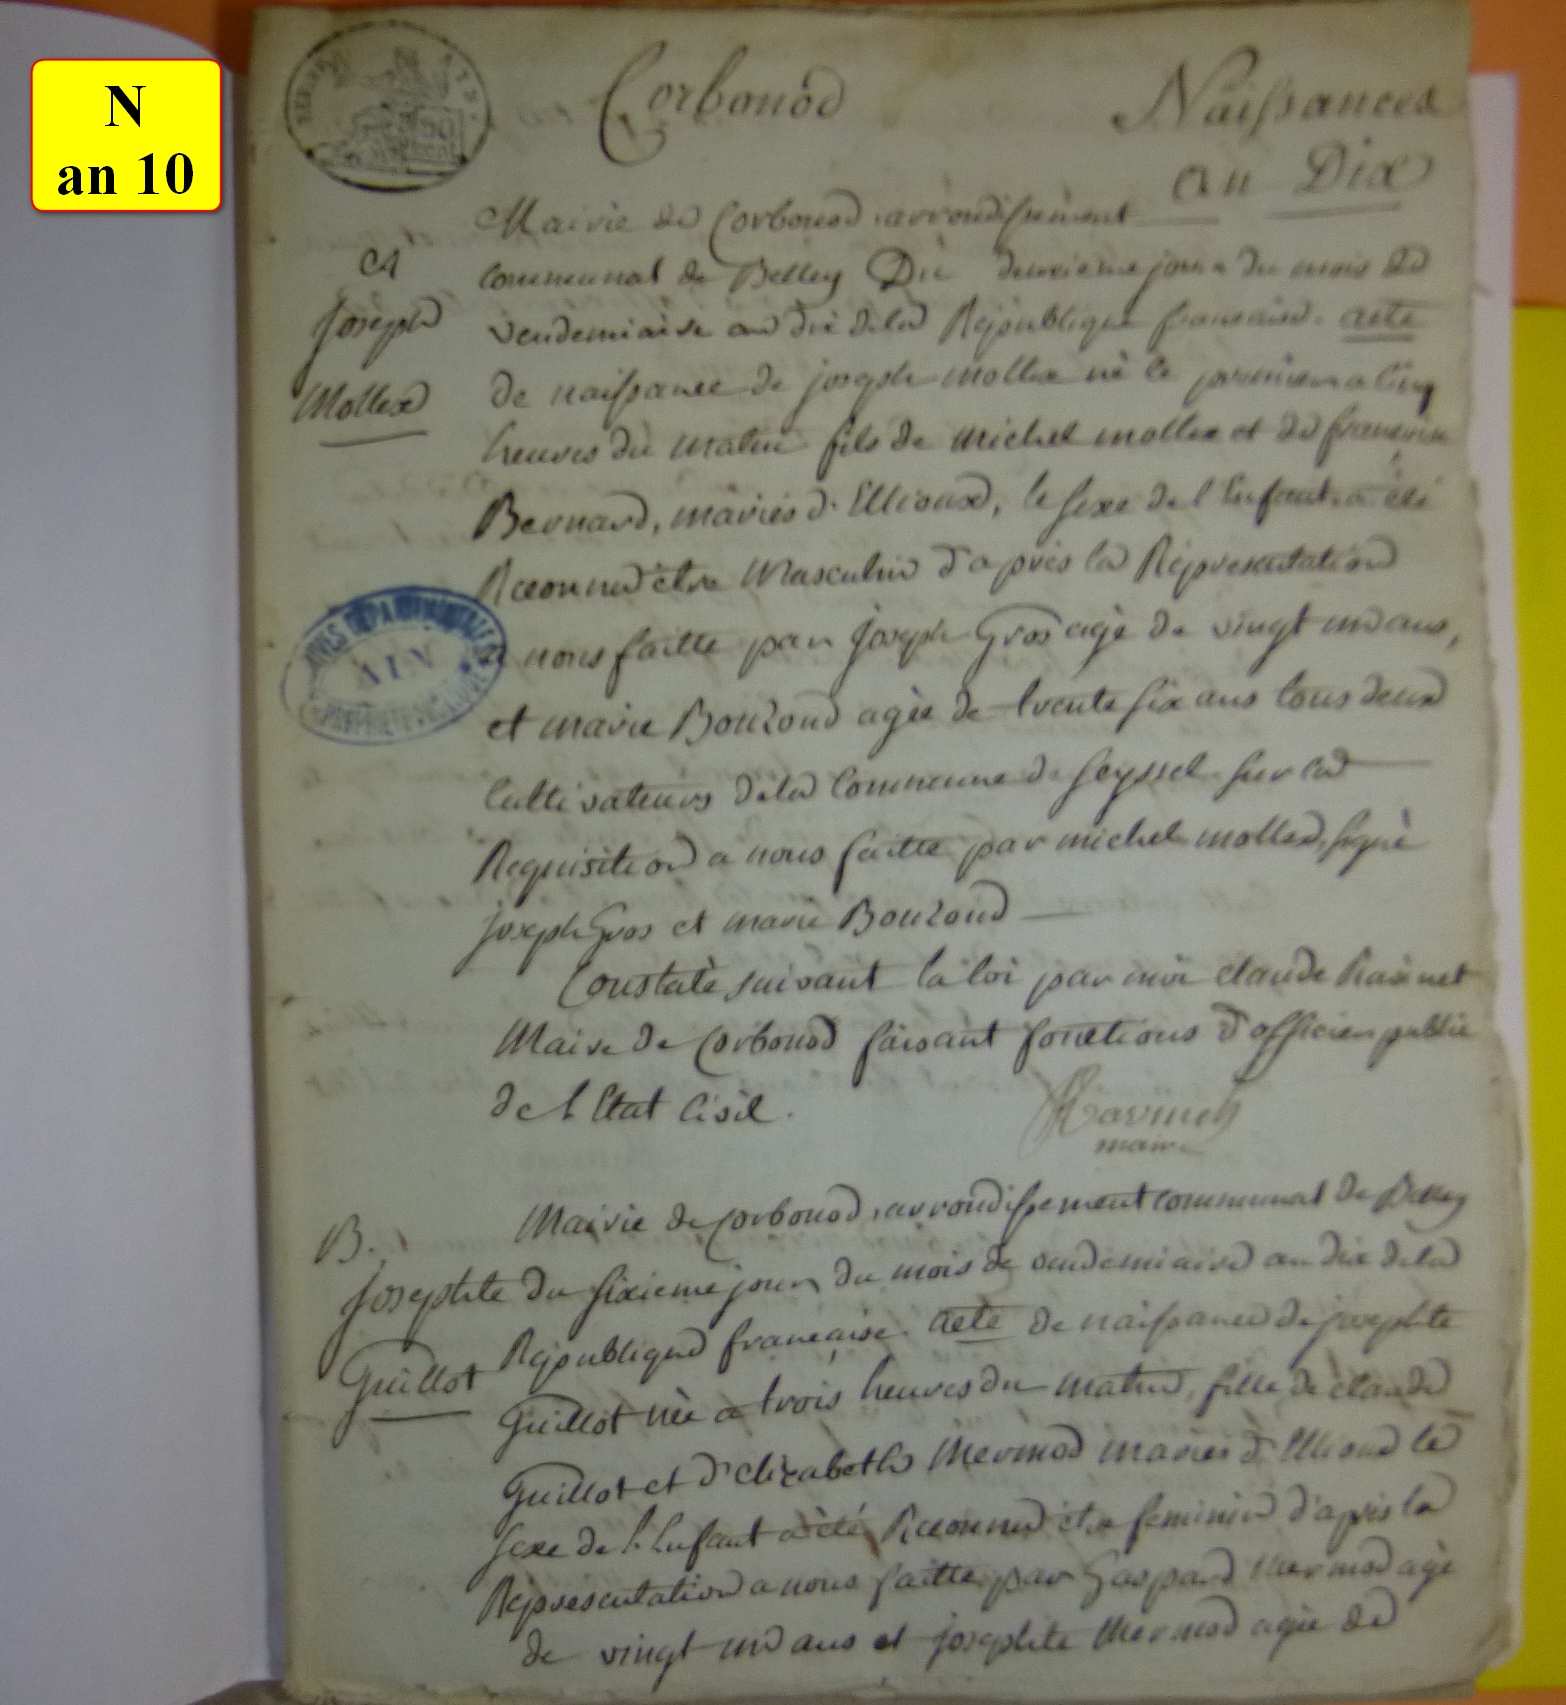 N
an 10
Corbonod
Naissances
an Dix
A
Joseph
Mollex
Mairie de Corbonod, arrondissement
communal de Belley Du deuxieme jour du mois de
vendemiaire an dix de la Republique francaise. acte
de naissance de joseph mollex né le premier a cinq
heures du matin fils de michel mollex et de francoise
Bernard, mariés d'Ellioux, le sexe de l'Enfant a été
Reconnu être Masculin d'après la Représentation
a nous faitte par joseph Gros agé de vingt un ans,
et marie Bouzoud agée de trente six ans tous deux
cultivateurs de la Commune de seyssel sur la
Requisition a nous faitte par michel mollex, signé
joseph Gros et marie Bouzoud
Constaté suivant la loi par moi claude Ravinet
Maire de Corbonod faisant fonctions d'officier public
de l'Etat Civil.
Ravinet
maire
ARCHIVES DEPARTEMENTALES
AIN
B.
Josephte
Guillot
Mairie de Corbonod, arrondissement communal de Belley
du sixieme jour du mois de vendemiaire an dix de la
Republique francaise. acte de naissance de josephte
Guillot née a trois heures du matin, fille de claude
Guillot et d'elizabeth Mermod mariés d'Ellioux le
sexe de l'Enfant a été Reconnu etre feminin d'après la
Représentation a nous faitte par Gaspard Mermod agé
de vingt un ans et josephte Mermod agée de